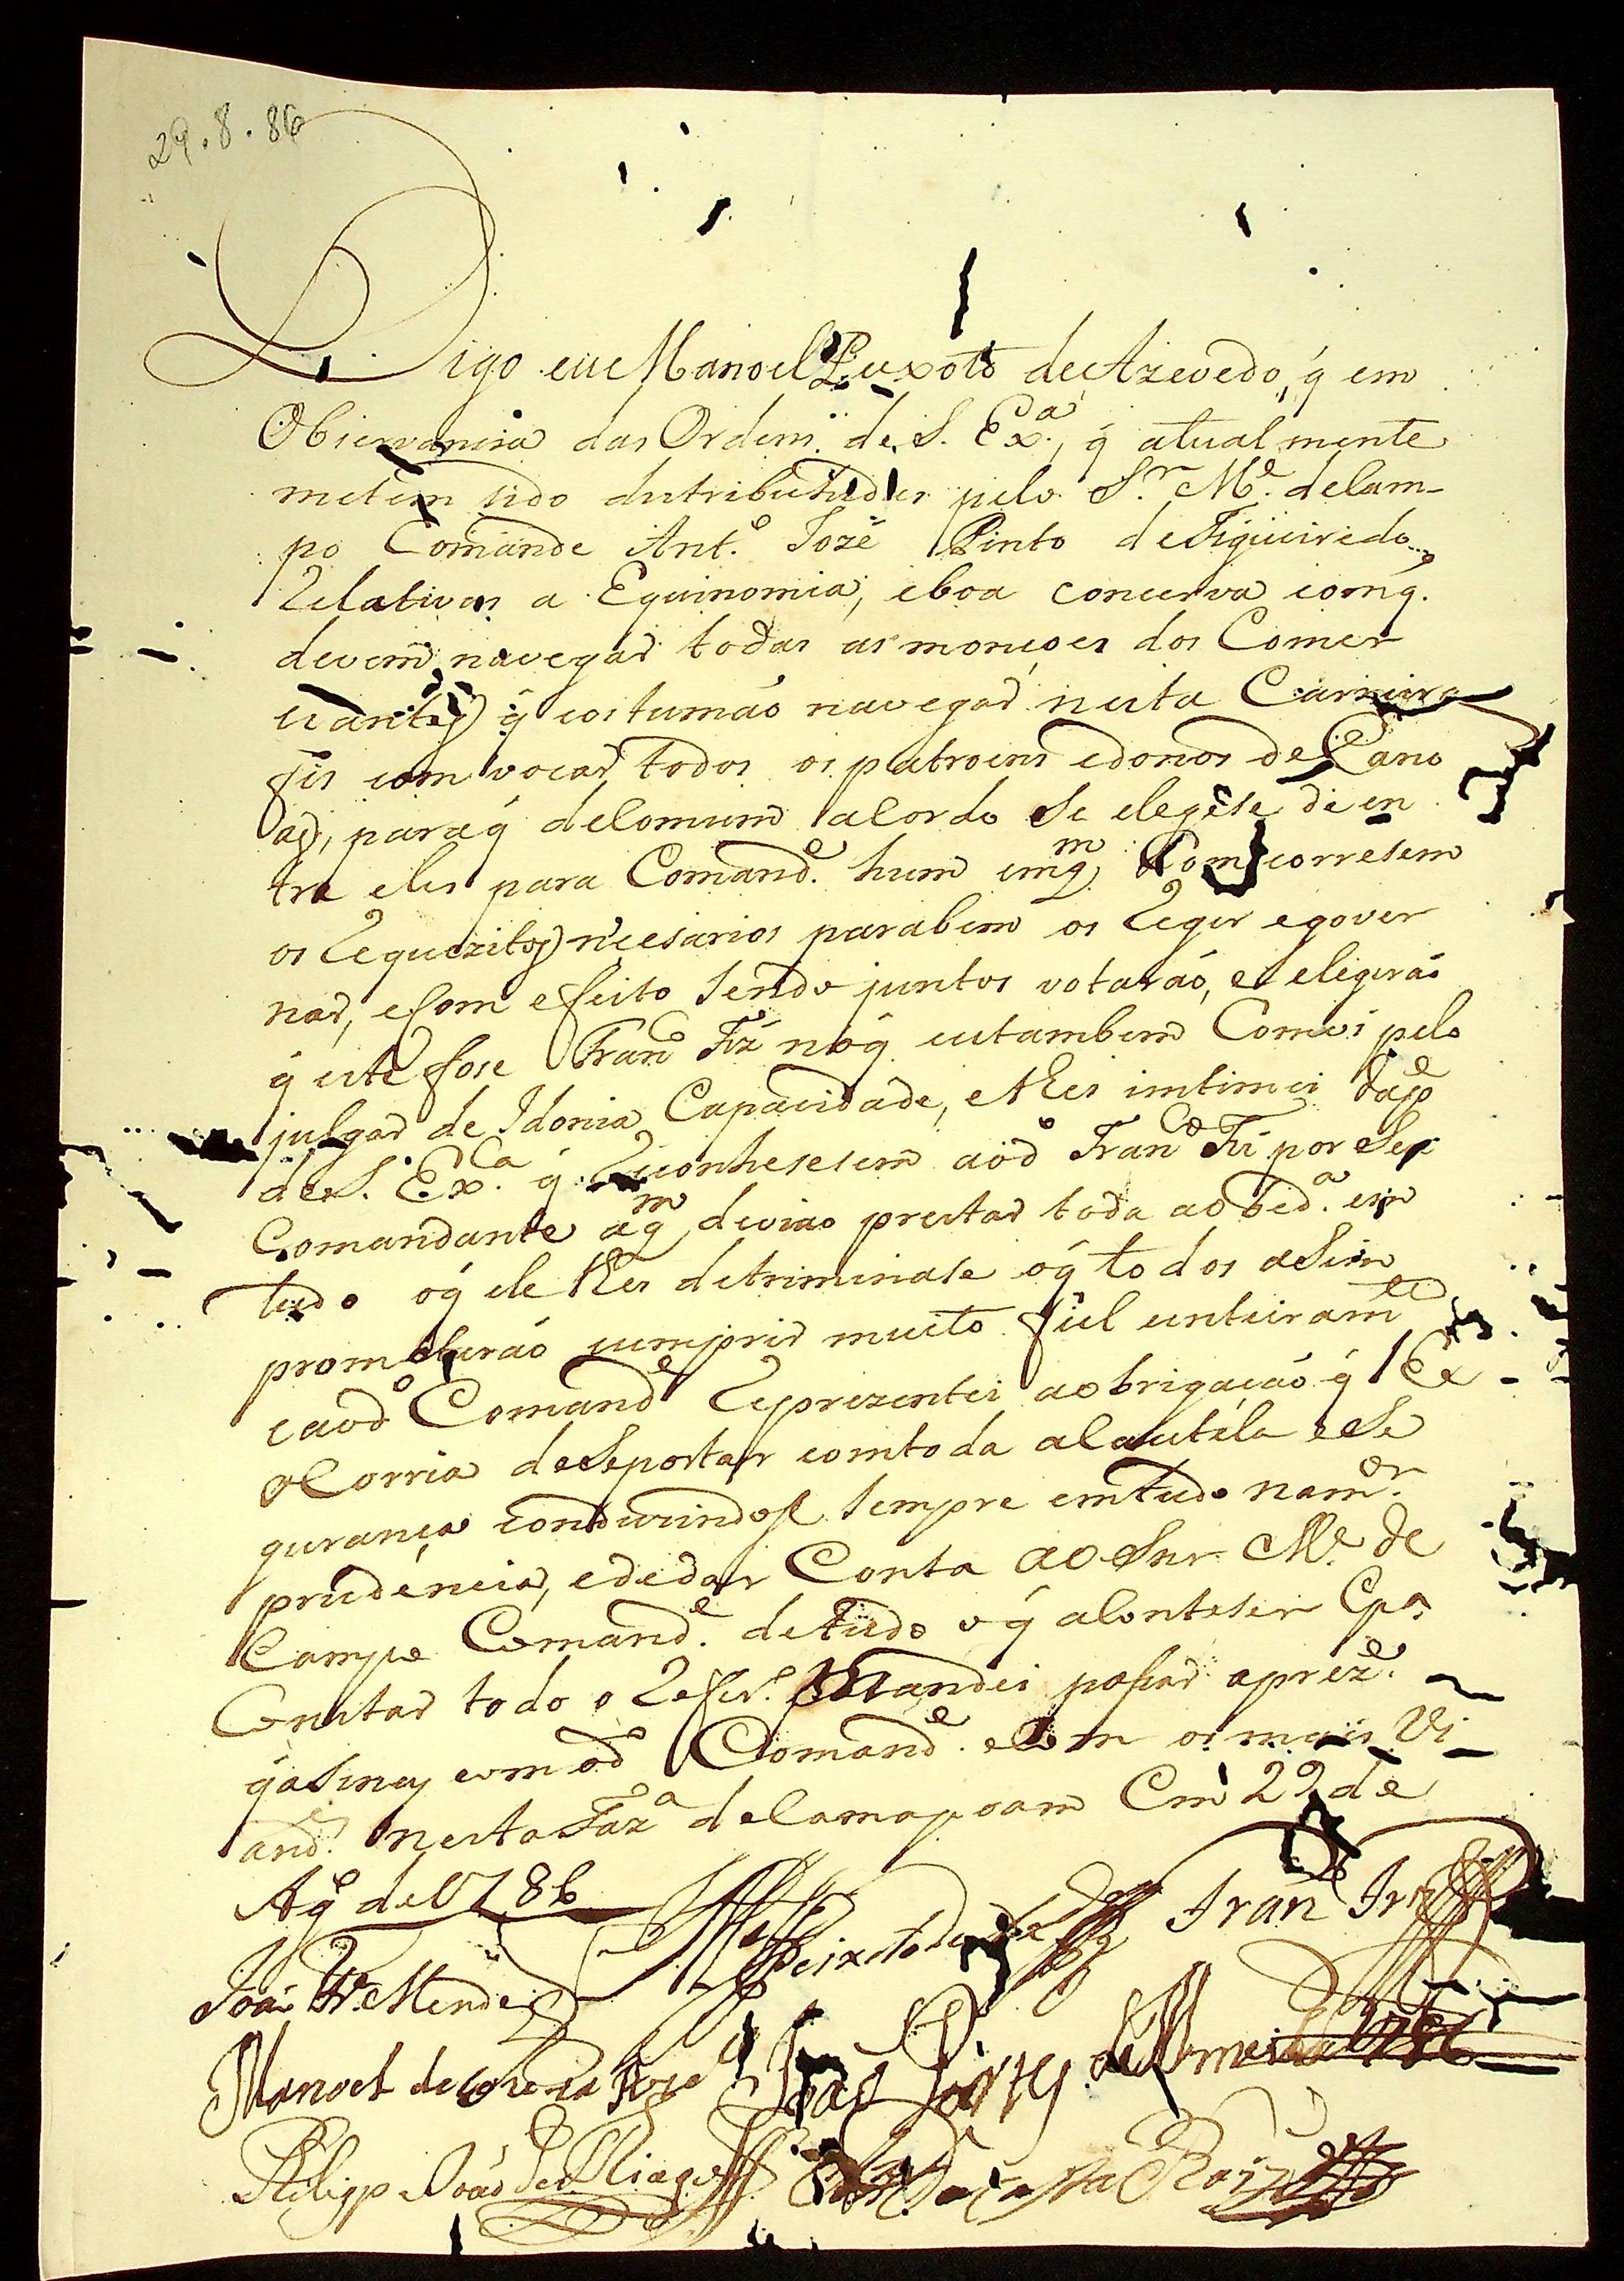 29.8.86
Digo eu Manoel Peixoto de Azevedo, q̃ em
Observancia das Ordens de S. Exª, q̃ atualmente
metem sido destribuhidas pelo Sr. Me. deCam-
po Comande Antº Jozé Pinto de Figueiredo
Relativas a Equinomia, eboa concerva comq.
devem navegar todas as monçoes dos Comer
ciantes q̃ costumaõ navegar nesta Carreira
fis comvocar todos os patroens edonos de Cano
as, paraq̃ deComum aCordo se elegese de en
tre eles para Comande. hum emqm. Comcorresem
os Requezitos necesarios parabem os Reger egover
nar, eCom efeito sendo juntos votaraõ, e elegeraõ
q̃ este fose Franco Frz̃ noq̃ eutambem Comvi pelo
julgar de Idonia Capacidade, elhes intimei dape
de S. Exca q̃ Reconhesesem aod.º Franco Frz̃ por Seo
Comandante aqm deviaõ prestar toda aobeda. em
tudo oq̃ ele lhes detriminase oq̃ todos aSim
prometeraõ cumprir muito fiel enteiramte
eaodº Comande Reprezentei aobrigacaõ q̃ lhe
oCorria deSeportar comtoda aCautéla eSe
gurança conduzindose sempre emtudo namor.
prudéncia, ededar Conta aoSnr Me de
Campo Comande. detudo oq̃ aConteser Epª
Constar todo o Refer.º Mandei pasar apreze.
q̃aSiney comod Comande. eCom os mais Vi
ande. nestaFazª deCamapoam Em 29 de
Agº de1786
Peixoto de Azdº Franco Frz̃
Joaõ Mendes
Manoel de
Joaõ de Almeida
Felipp Joaõ